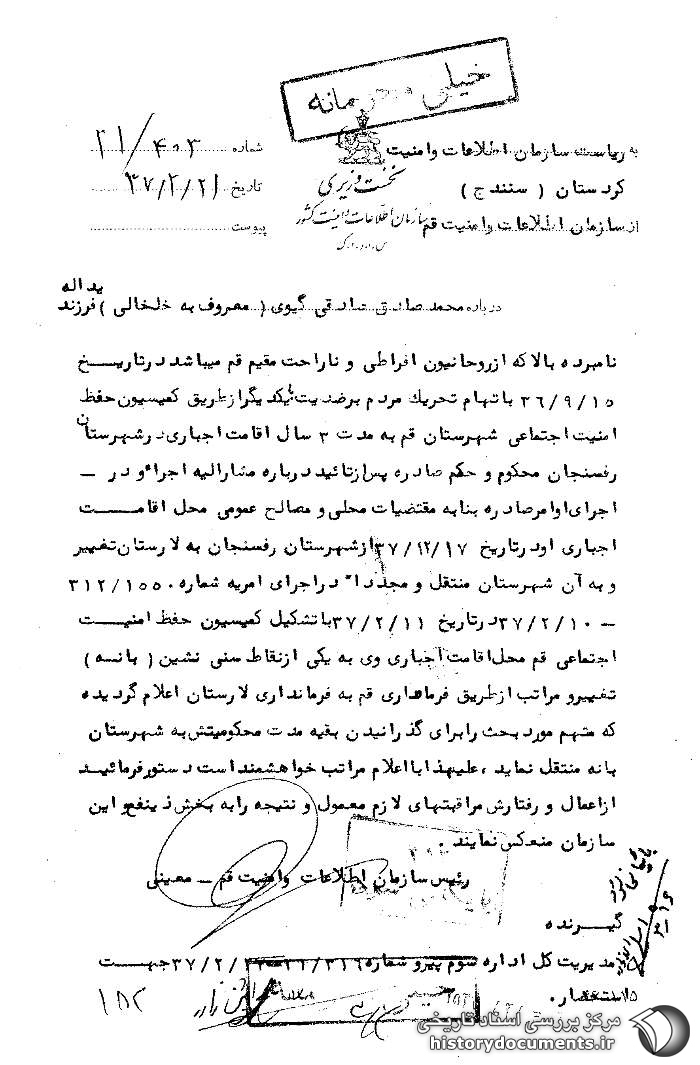 خیلی محرمانه
به ریاست سازمان اطلاعات وامنیت
شماره ۲۱/۴۰۳
کردستان ( سنندج )
نخست وزیری
تاریخ ۳۷/۲/۲۱
از سازمان اطلاعات وامنیت قم
سازمان اطلاعات وامنیت کشور
پیوست
س.ا.و.ا.ک
درباره محمد صادق صادقی گیوی ( معروف به خلخالی ) فرزند یداله
نامبرده بالا که ازروحانیون افراطی و ناراحت مقیم قم میباشد درتاریخ
۳۶/۹/۱۵ باتهام تحریك مردم برضدیت یکدیگرازطریق کمیسیون حفظ
امنیت اجتماعی شهرستان قم به مدت ۳ سال اقامت اجباری در شهرستان
رفسنجان محکوم و حکم صادره پس ازتائید درباره مشارالیه اجراء و در –
اجرای اوامر صادره بنابه مقتضیات محلی و مصالح عمومی محل اقامت
اجباری اودرتاریخ ۳۷/۱۲/۱۷ ازشهرستان رفسنجان به لارستان تغییر
و به آن شهرستان منتقل و مجددا" دراجرای امریه شماره ۳۱۲/۱۵۵۰
– ۳۷/۲/۱۰ درتاریخ ۳۷/۲/۱۱ باتشکیل کمیسیون حفظ امنیت
اجتماعی قم محل اقامت اجباری وی به یکی ازنقاط سنی نشین ( بانه )
تغییرو مراتب ازطریق فرمانداری قم به فرمانداری لارستان اعلام گردیده
که متهم مورد بحث رابرای گذرانیدن بقیه مدت محکومیتش به شهرستان
بانه منتقل نماید ، علیهذا بااعلام مراتب خواهشمند است دستورفرمائید
ازاعمال و رفتارش مراقبتهای لازم معمول و نتیجه رابه بخش ذینفع و این
سازمان منعکس نمایند .
رئیس سازمان اطلاعات وامنیت قم – معینی
گیرنده
مدیریت کل اداره سوم پیرو شماره ۲۱/۳۱۶ جهت
استحضار .
مرکز بررسی اسناد تاریخی
historydocuments.ir